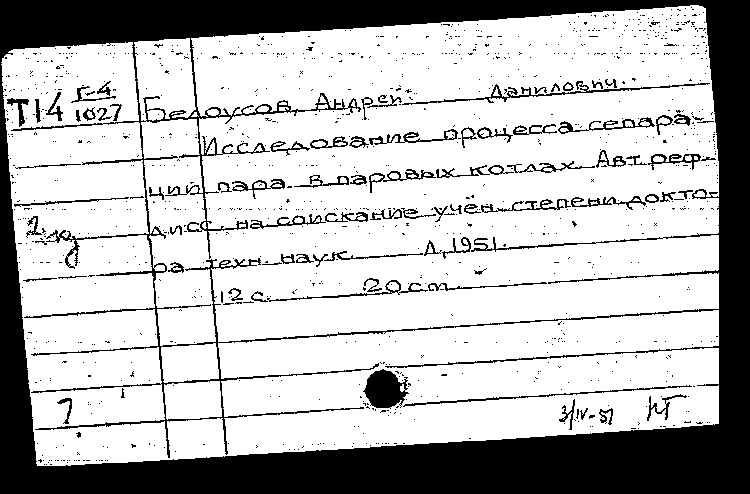 Т14 Г-4/1027 Белоусов, Андрей Данилович.
Исследование процесса сепара-
ции пара в паровых котлах. Автореф.
дисс. на соискание учен. степени докто-
ра техн. наук. Л, 1951.
12 с. 20 cm
3/IV-51